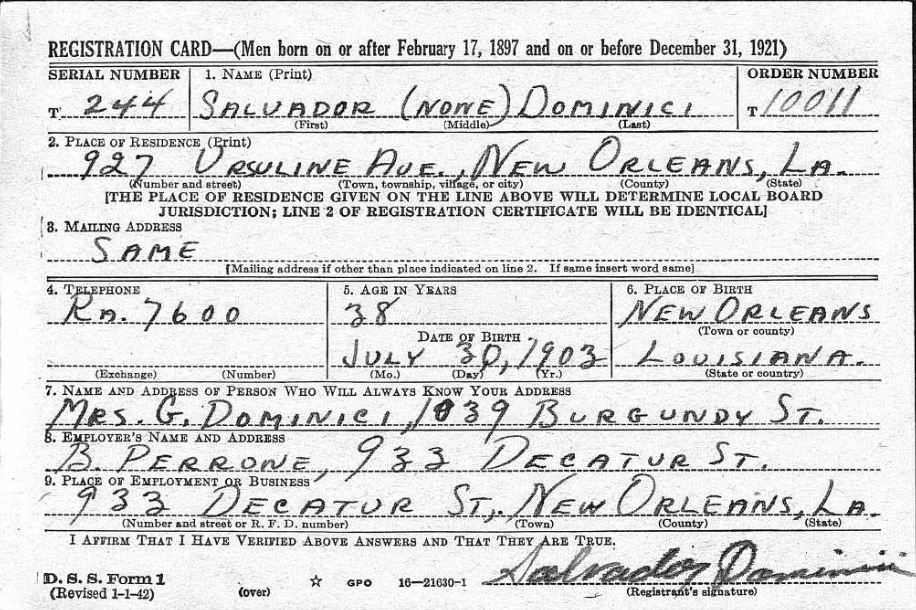 REGISTRATION CARD—(Men born on or after February 17, 1897 and on or before December 31, 1921)
SERIAL NUMBER 1. NAME (Print) ORDER NUMBER
T 244 SALVADOR (NONE) DOMINICI T 10011
(First) (Middle) (Last)
2. PLACE OF RESIDENCE (Print)
927 URSULINE AVE., NEW ORLEANS, LA.
(Number and street) (Town, township, village, or city) (County) (State)
[THE PLACE OF RESIDENCE GIVEN ON THE LINE ABOVE WILL DETERMINE LOCAL BOARD
JURISDICTION; LINE 2 OF REGISTRATION CERTIFICATE WILL BE IDENTICAL]
3. MAILING ADDRESS
SAME
[Mailing address if other than place indicated on line 2. If same insert word same]
4. TELEPHONE 5. AGE IN YEARS 6. PLACE OF BIRTH
RA. 7600 38 NEW ORLEANS
DATE OF BIRTH (Town or county)
JULY 30, 1903 LOUISIANA.
(Exchange) (Number) (Mo.) (Day) (Yr.) (State or country)
7. NAME AND ADDRESS OF PERSON WHO WILL ALWAYS KNOW YOUR ADDRESS
MRS. G. DOMINICI, 1039 BURGUNDY ST.
8. EMPLOYER'S NAME AND ADDRESS
B. PERRONE, 933 DECATUR ST.
9. PLACE OF EMPLOYMENT OR BUSINESS
933 DECATUR ST., NEW ORLEANS, LA.
(Number and street or R. F. D. number) (Town) (County) (State)
I AFFIRM THAT I HAVE VERIFIED ABOVE ANSWERS AND THAT THEY ARE TRUE.
D. S. S. Form 1 Salvador Dominici
(Revised 1-1-42) (over) ☆ GPO 16—21630-1 (Registrant's signature)